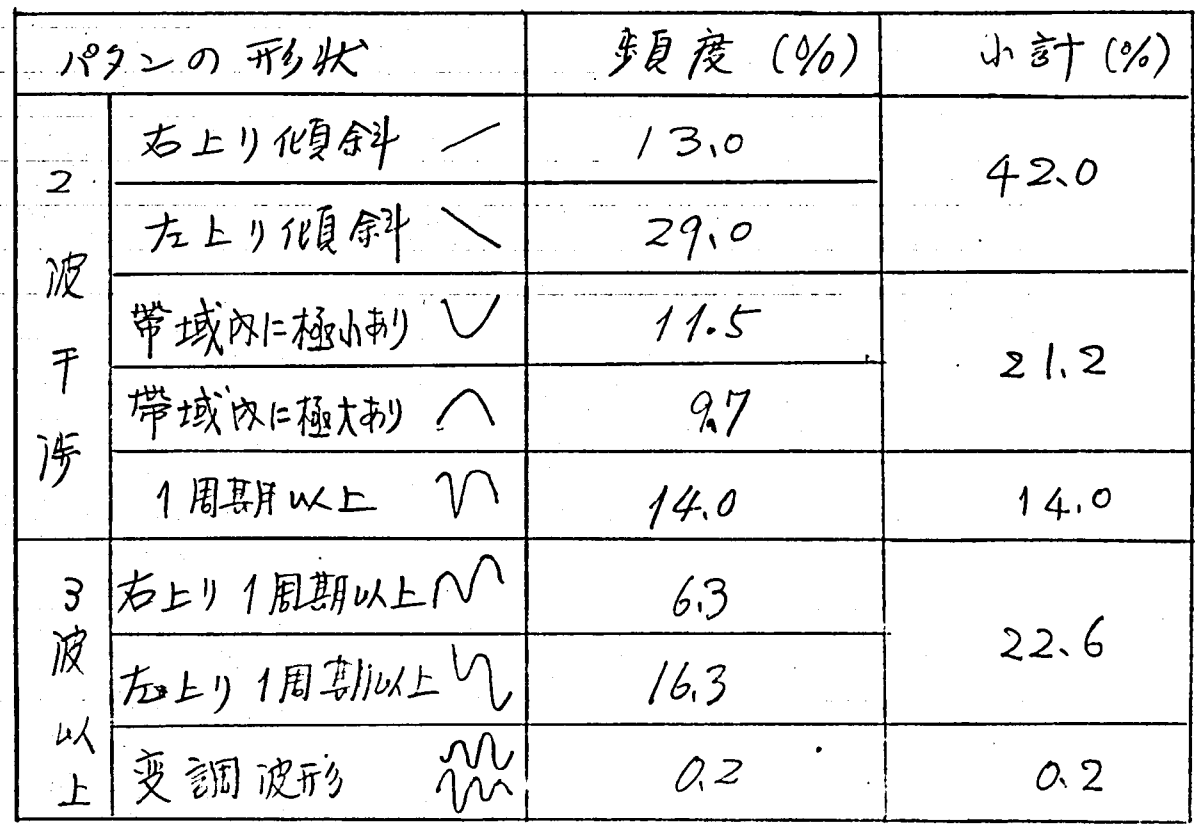 パタンの形状 頻度(%) 小計(%)
2波干渉
右上り傾斜 13.0 42.0
左上り傾斜 29.0
帯域内に極小あり 11.5 21.2
帯域内に極大あり 9.7
1周期以上 14.0 14.0
3波以上
右上り1周期以上 6.3 22.6
左上り1周期以上 16.3
変調波形 0.2 0.2